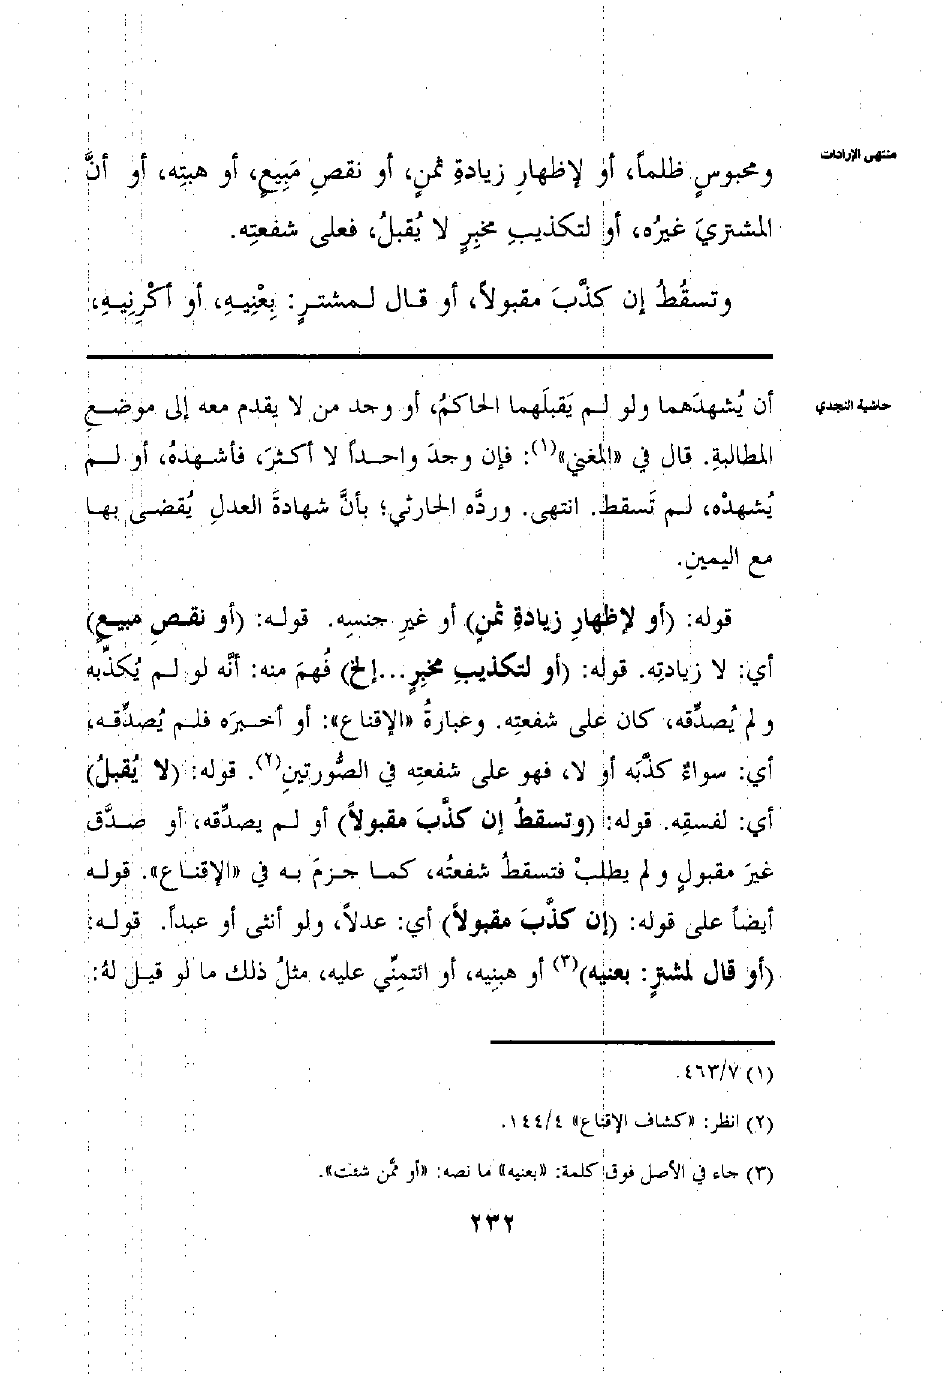 منتهى الإرادات
ومحبوسٍ ظلماً، أو لإظهارِ زيادةِ ثمنٍ، أو نقصِ مَبِيعٍ، أو هبتِه، أو أنَّ
المشتريَ غيرُه، أو لتكذيبِ مخبِرٍ لا يُقبلُ، فعلى شفعتِه.
وتسقُطُ إن كذَّبَ مقبولاً، أو قال لمشترٍ: بِعْنِيهِ، أو أَكْرِنِيهِ،
حاشية النجدي
أن يُشهدَهما ولو لم يَقبلَهما الحاكمُ، أو وجد من لا يقدم معه إلى موضعِ
المطالبةِ. قال في «المغني»(١): فإن وجدَ واحداً لا أكثرَ، فأشهدهُ، أو لم
يُشهدْه، لم تَسقط. انتهى. وردَّه الحارثي؛ بأنَّ شهادةَ العدلِ يُقضى بها
مع اليمينِ.
قوله: (أو لإظهارِ زيادةِ ثمنٍ) أو غيرِ جنسِه. قوله: (أو نقصِ مبيعٍ)
أي: لا زيادتِه. قوله: (أو لتكذيبِ مخبِرٍ...إلخ) فُهمَ منه: أنَّه لو لم يُكذِّبه
ولم يُصدِّقه، كان على شفعتِه. وعبارةُ «الإقناع»: أو أخبرَه فلم يُصدِّقه،
أي: سواءٌ كذَّبَه أو لا، فهو على شفعتِه في الصُّورتينِ(٢). قوله: (لا يُقبلُ)
أي: لفسقِه. قوله: (وتسقطُ إن كذَّبَ مقبولاً) أو لم يصدِّقه، أو صدَّق
غيرَ مقبولٍ ولم يطلبْ فتسقطُ شفعتُه، كما جزمَ به في «الإقناع». قوله
أيضاً على قوله: (إن كذَّبَ مقبولاً) أي: عدلاً، ولو أنثى أو عبداً. قوله:
(أو قال لمشترٍ: بعنيه)(٣) أو هبنِيه، أو ائتمنِّي عليه، مثلُ ذلك ما لو قيل لهُ:
(١) ٤٦٣/٧.
(٢) انظر: «كشاف الإقناع» ١٤٤/٤.
(٣) جاء في الأصل فوق كلمة: «بعنيه» ما نصه: «أو ممَّن شئت».
٢٣٢